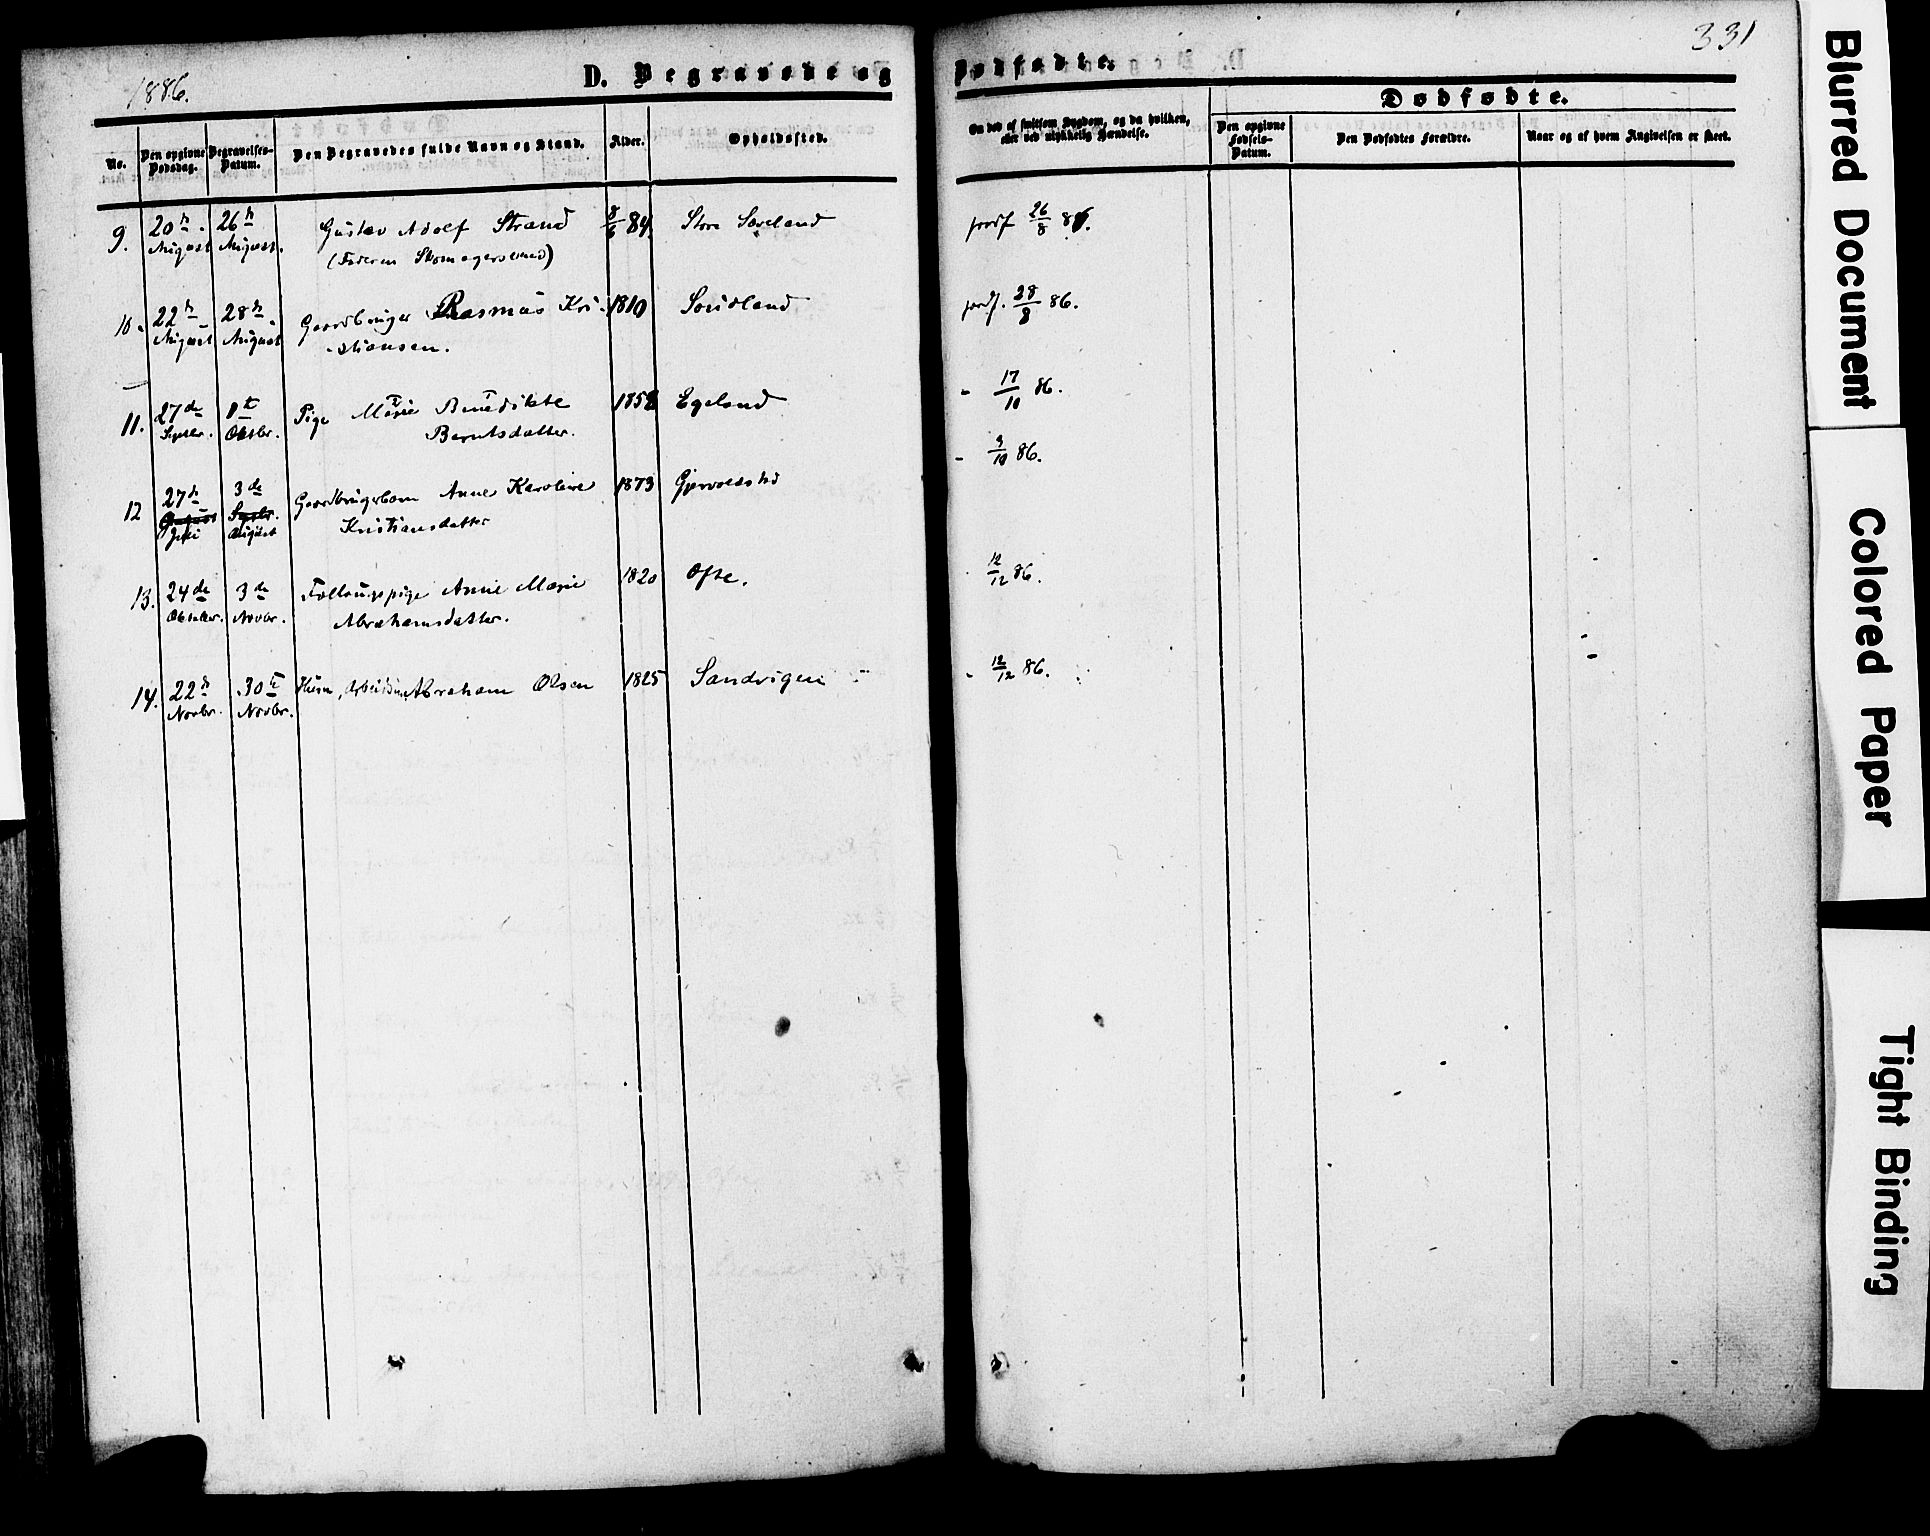 1886.
D. Begravede og
Dødfødte.
331
No.
Den opgivne Dødsdag.
Begravelses-Datum.
Den Begravedes fulde Navn og Stand.
Alder.
Opholdssted.
Om død af smitsom Sygdom, og da hvilken,
eller ved ulykkelig Hændelse.
Dødfødte.
Den opgivne Fødsels-Datum.
Den Dødfødtes Forældre.
Naar og af hvem Angivelsen er skeet.
9. 20de 26de Gustav Adolf Strand 8/6 84. Store 26/8 86.
August August. (Faderen
10. 22de 28de Gaardbruger Rasmus Kri- 1810 28/8 86.
August August stiansen.
11. 27de 1ste Pige Marie Benedikte 1858 Egeland - 17/10 86.
Septbr. Oktbr. Berntsdatter.
12 27de 3de Gaardbrugerbarn Anne Karoline 1873 - 9/10 86.
Juli August Kristiansdatter
13. 24de 3de Anne Marie 1820 Ofte. 12/12 86.
Oktober. Novbr. Abrahamsdatter.
14. 22de 30te Abraham Olsen 1825 Sandvigen - 12/12 86.
Novbr. Novbr.
Blurred Document
Colored Paper
Tight Binding